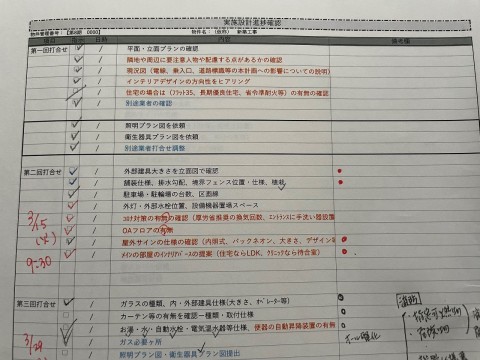 実施設計進捗確認
物件管理番号： 【第8節 0000】 物件名： (仮称) 新築工事
項目 日時 内容 備考欄
第一回打合せ / 平面・立面プランの確認
/ 隣地や周辺に要注意人物や配慮する点があるかの確認
/ 現況図（電線、乗入口、道路標識等の本計画への影響についての説明）
/ インテリアデザインの方向性をヒアリング
/ 住宅の場合は（フラット35、長期優良住宅、省令準耐火等）の有無の確認
/ 別途業者の確認
/ 照明プラン図を依頼
/ 衛生器具プラン図を依頼
/ 別途業者打合せ調整
第二回打合せ / 外部建具大きさを立面図で確認
/ 舗装仕様、排水勾配、境界フェンス位置・仕様、植栽
/ 駐車場・駐輪場の台数、区画線
3/15 / 外灯・外部水栓位置、設備機器置場スペース
/ コロナ対策の有無の確認（厚労省推奨の換気回数、エントランスに手洗い器設置
(火) / OAフロアの有無
/ 屋外サインの仕様の確認（内照式、バックネオン、大きさ、デザイン
9-30 / メインの部屋のインテリアパースの提案（住宅ならLDK、クリニックなら待合室）
第三回打合せ / ガラスの種類、内・外部建具仕様(大きさ、オペレーター等)
/ カーテン等の有無を確認ー種類・取付仕様
/ お湯・水・自動水栓・電気温水器等仕様、便器の自動昇降装置の有無
3/29 / ガス必要ヶ所
/ 照明プラン図・衛生器具プラン図提出
消防